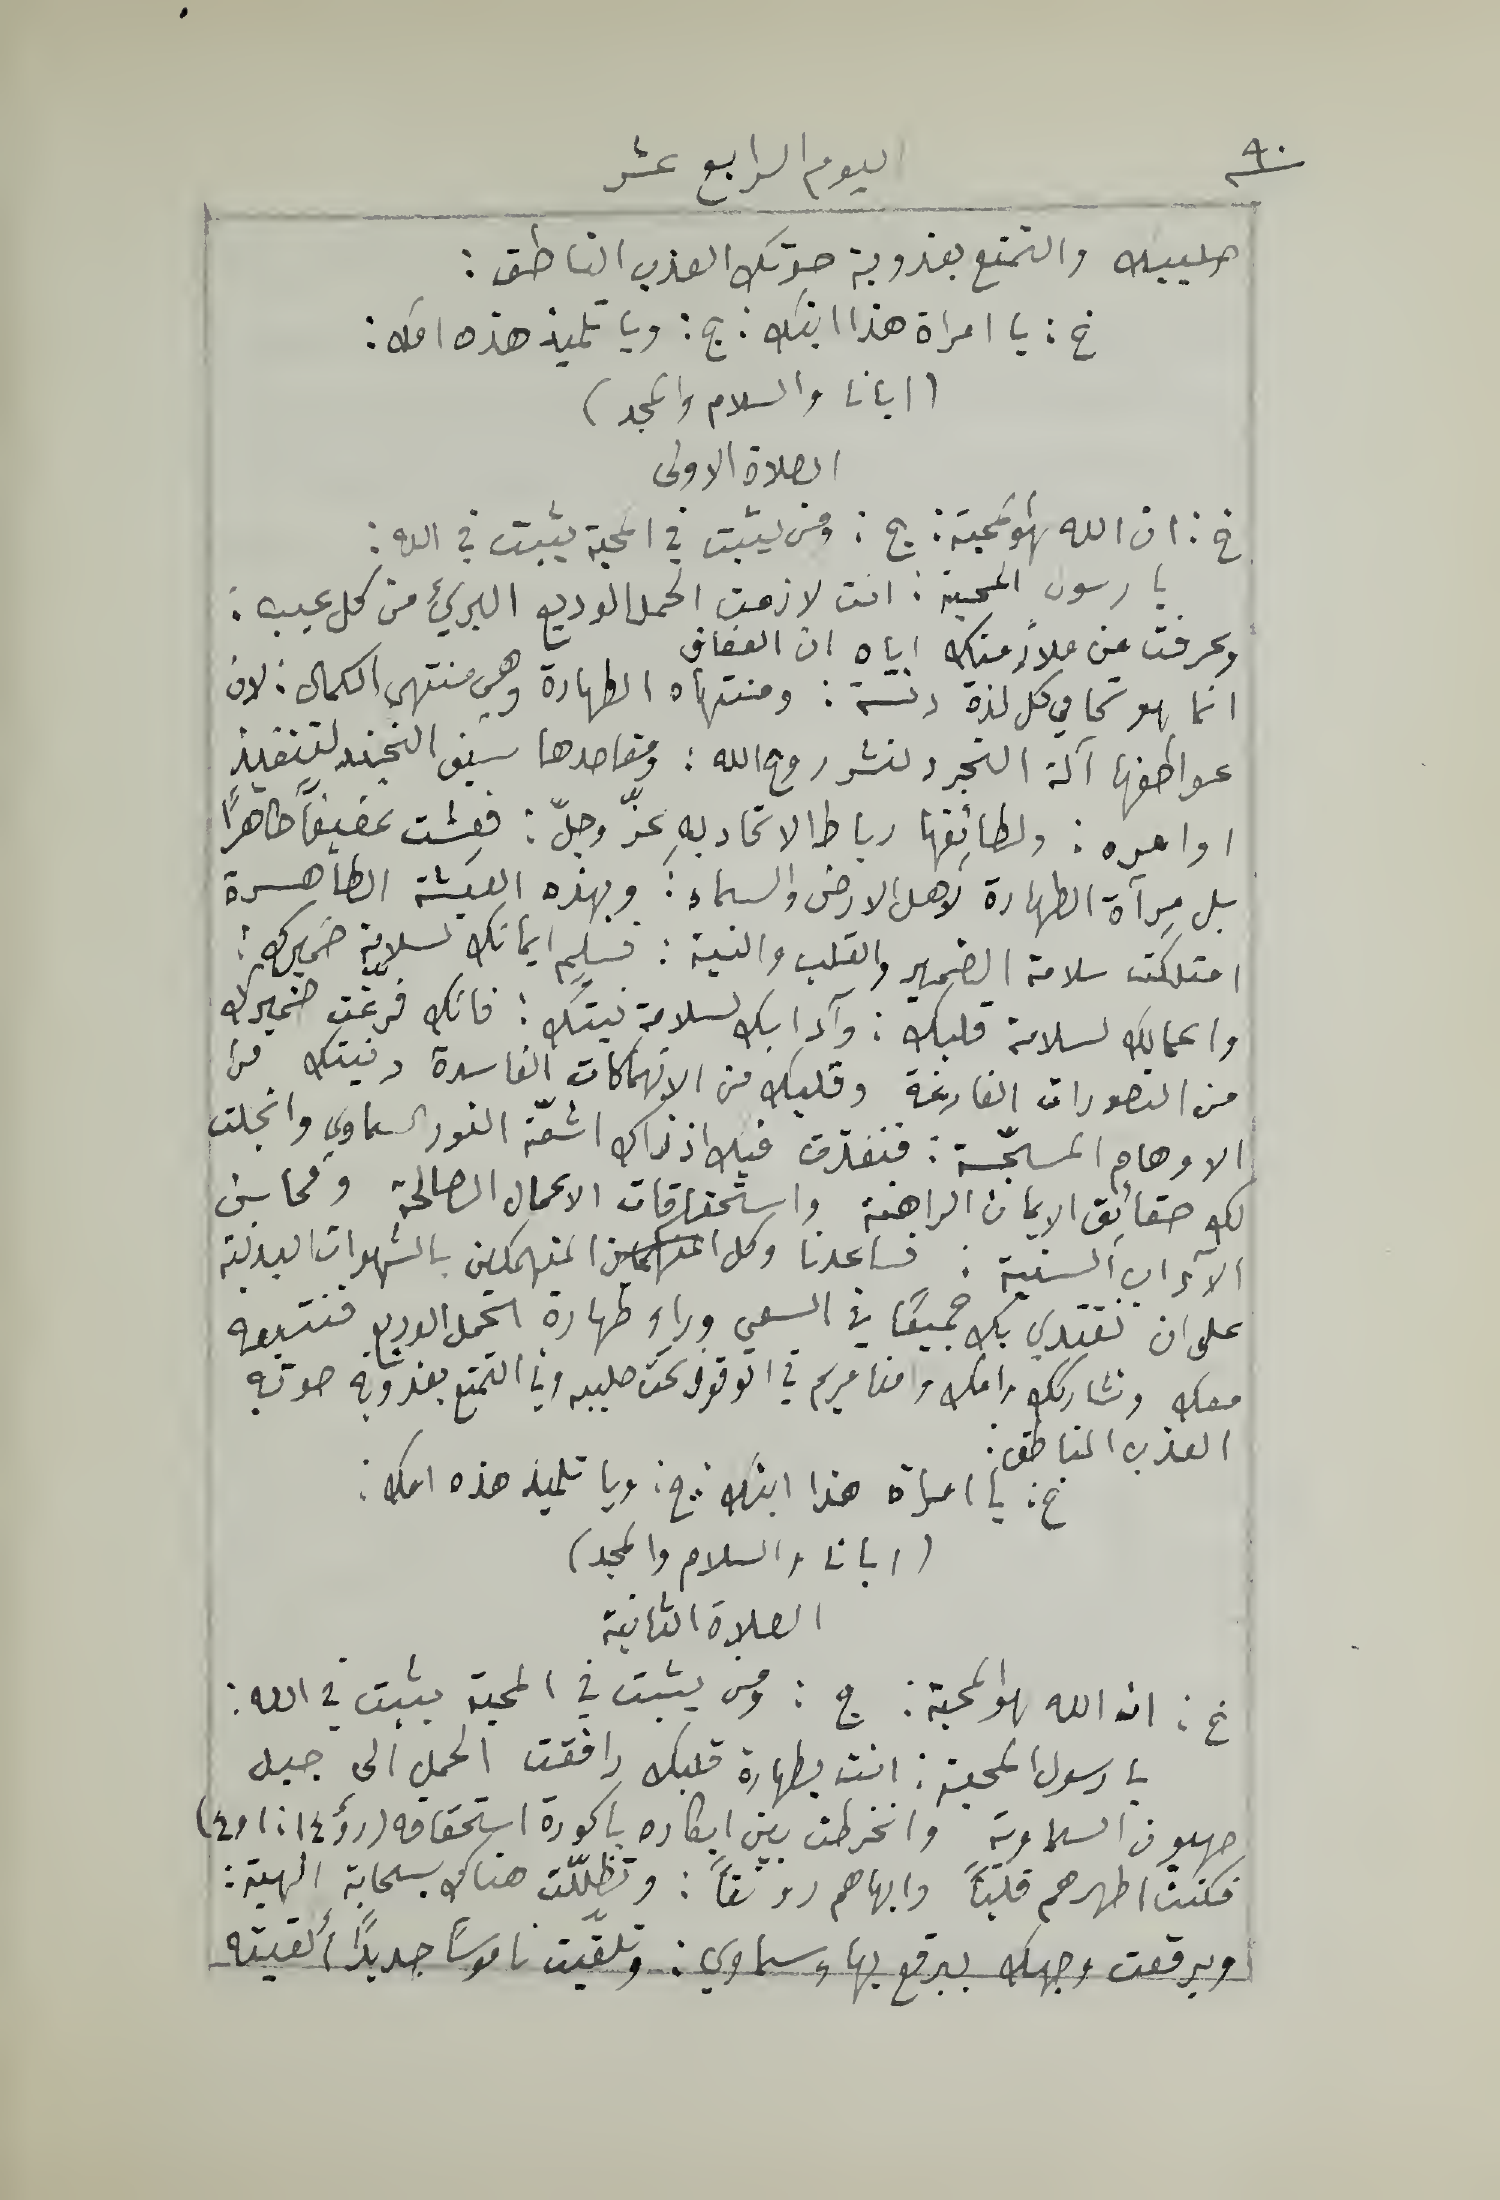 ٩٠
اليوم الرابع عشر
صليبك والتمتع بعذوبة صوتك العذب الناطق :
خ : يا امراة هذا ابنك : ج : ويا تلميذ هذه امك :
( ابانا والسلام والمجد )
الصلاة الاولى
خ : ان الله هو المحبة : ج : ومن يثبت في المحبة يثبت في الله :
يا رسول المحبة : انت لازمت الحمل الوديع البريء من كل عيب :
وعرفت من ملازمتك اياه ان العفاف
انما هو تحامي كل لذة دنسة : ومنتهاه الطهارة وهي منتهى الكمال : لان
عواطفها آلة التجرد لنشر روح الله : ومقاصدها سيف التجند لتنفيذ
اوامره : ولطائفها رباط الاتحاد بهِ عزّ وجلّ : فعشت عفيفاً طاهراً
بل مرآة الطهارة لاهل الارض والسماء : وبهذه العيشة الطاهرة
امتلكت سلامة الضمير والقلب والنية : فسلِم ايمانك لسلامة ضميرك :
واعمالك لسلامة قلبك : وآدابك لسلامة نيتك : فانك فرّغت ضميرك
من التصورات الفارغة وقلبك من الانهماكات الفاسدة ونيتك من
الاوهام المسجّسة : فنفذت فيك اذ ذاك اشعّة النور السماوي وانجلت
لك حقائق الايمان الراهنة واستحقاقات الاعمال الصالحة ومحاسن
الآداب السنية : فساعدنا وكل المنهمكين بالشهوات البدنية
على ان نقتدي بك جميعًا في السعي وراء طهارة الحمل الوديع فنتبعه
معك ونشاركك وامك وامنا مريم في الوقوف تحت صليبه وفي التمتع بعذوبة صوتهِ
العذب الناطق :
خ : يا امراة هذا ابنك : ج : ويا تلميذ هذه امك :
( ابانا والسلام والمجد )
الصلاة الثانية
خ : ان الله هو المحبة : ج : ومن يثبت في المحبة يثبت في الله :
يا رسول المحبة : انت بطهارة قلبك رافقت الحمل الى جبل
صهيون السماوية وانخرطت بين ابكاره باكورة استحقاقه (رؤ ١٤ : ١ و ٤)
فكنت اطهرهم قلباً وابهاهم رونقاً : وتظللّت هناك بسحابة الهية :
وبرقعت وجهك ببرقع بهاء سماوي : وتلقّيت ناموسًا جديدًا ألقيته